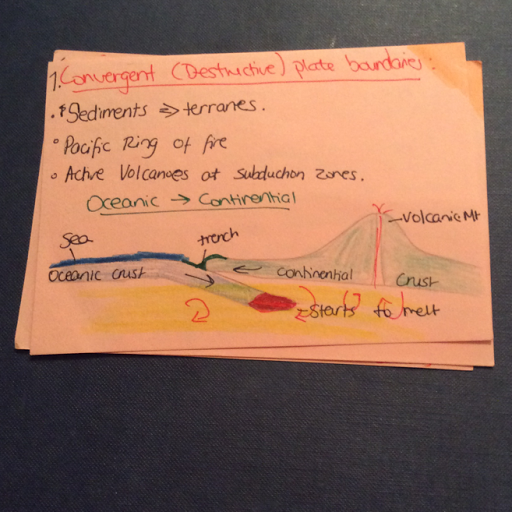 1. Convergent (Destructive) plate boundaries:
• Sediments => terranes.
° Pacific Ring of fire
° Active Volcanoes at subduction zones.
Oceanic → Continential
Volcanic Mt
Sea
trench
Oceanic crust
← Continential Crust
Starts to melt